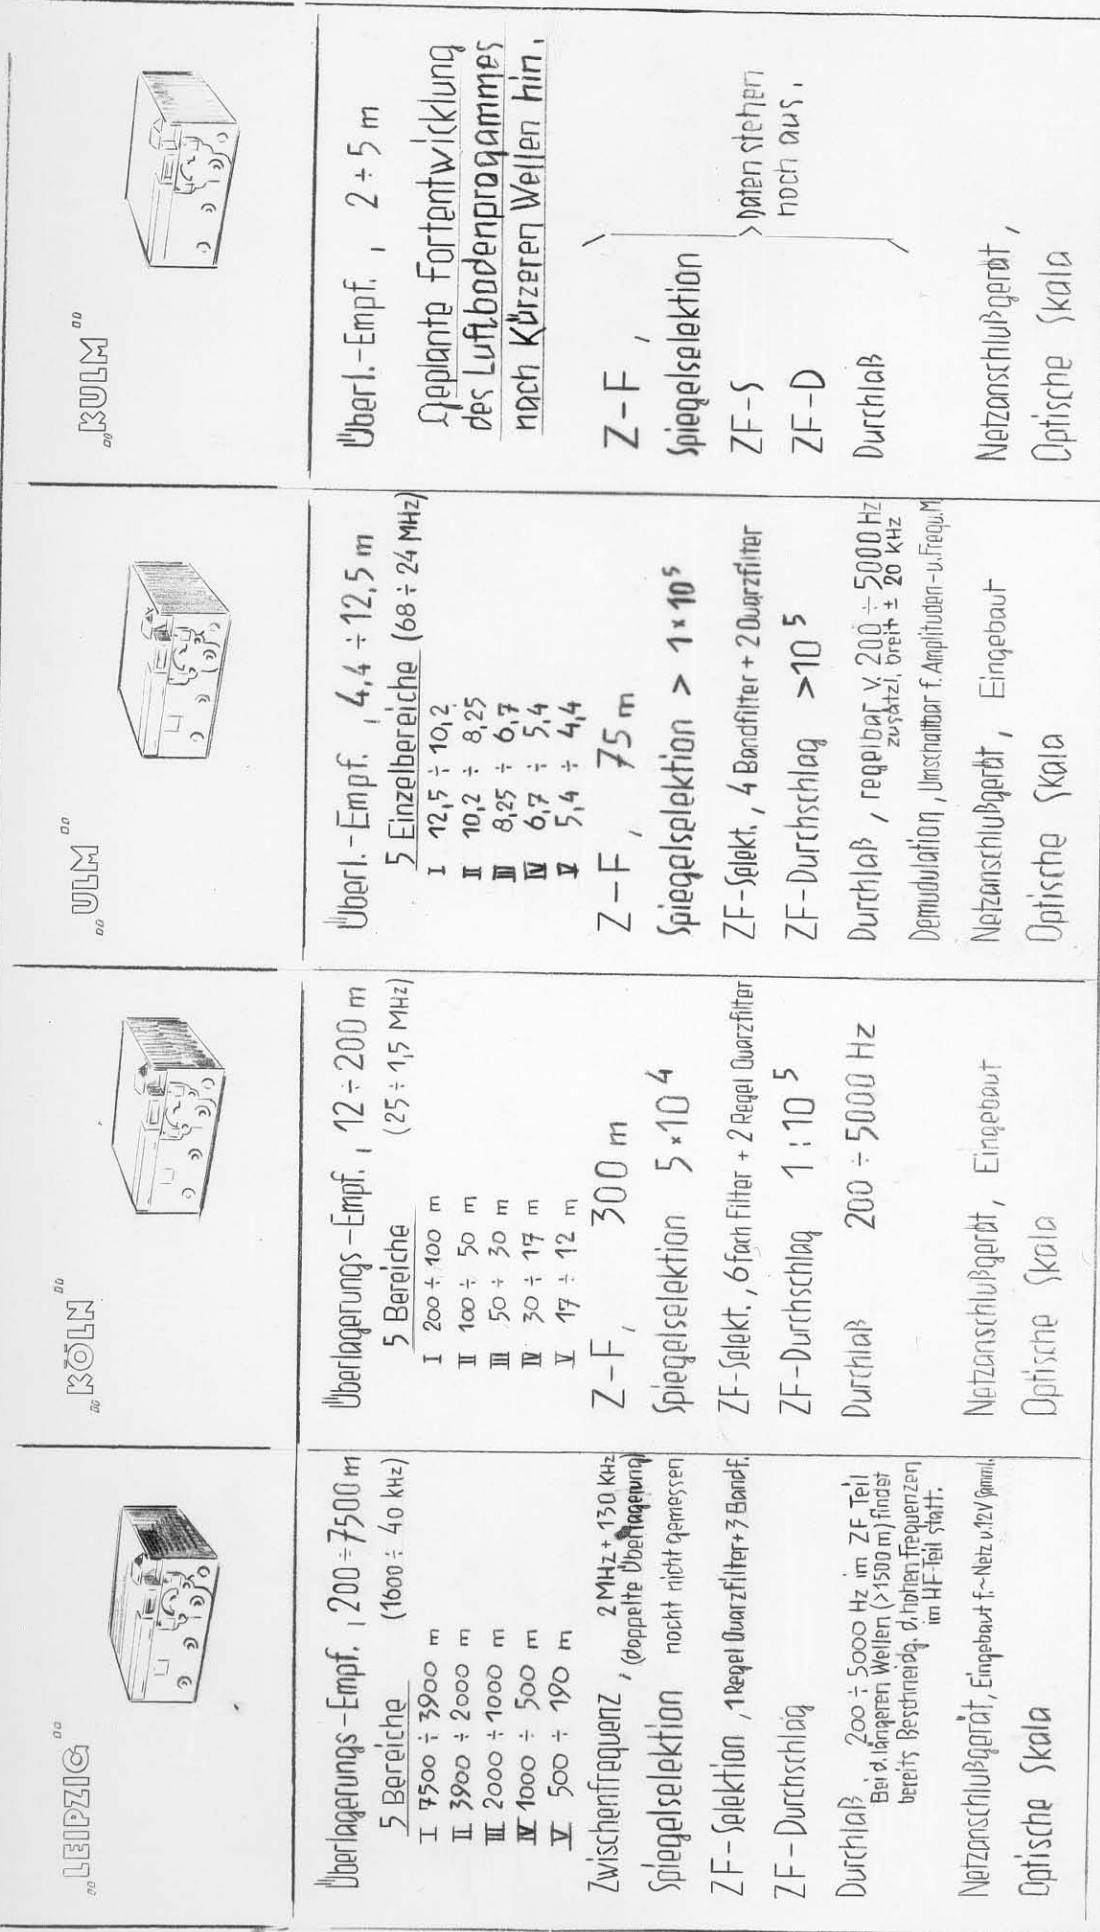 „LEIPZIG“
Überlagerungs-Empf., 200÷7500 m
(1600 ÷ 40 kHz)
5 Bereiche
I 7500 ÷ 3900 m
II 3900 ÷ 2000 m
III 2000 ÷ 1000 m
IV 1000 ÷ 500 m
V 500 ÷ 190 m
Zwischenfrequenz, 2 MHz + 130 KHz
(doppelte Überlagerung)
Spiegelselektion nocht nicht gemessen
ZF-Selektion, 1 Regel Quarzfilter+3 Bandf.
ZF-Durchschlag
Durchlaß 200 ÷ 5000 Hz im ZF Teil
Bei d. längeren Wellen (>1500 m) findet
bereits Beschneidg. d. hohen Frequenzen
im HF-Teil statt.
Netzanschlußgerät, Eingebaut f.~Netz u. 12V Samml.
Optische Skala
„KÖLN“
Überlagerungs-Empf., 12÷200 m
(25 ÷ 1,5 MHz)
5 Bereiche
I 200 ÷ 100 m
II 100 ÷ 50 m
III 50 ÷ 30 m
IV 30 ÷ 17 m
V 17 ÷ 12 m
Z-F, 300 m
Spiegelselektion 5×10 4
ZF-Selekt., 6fach Filter + 2 Regel Quarzfilter
ZF-Durchschlag 1:10 5
Durchlaß 200 ÷ 5000 Hz
Netzanschlußgerät, Eingebaut
Optische Skala
„ULM“
Überl.-Empf., 4,4 ÷ 12,5 m
5 Einzelbereiche (68 ÷ 24 MHz)
I 12,5 ÷ 10,2
II 10,2 ÷ 8,25
III 8,25 ÷ 6,7
IV 6,7 ÷ 5,4
V 5,4 ÷ 4,4
Z-F, 75 m
Spiegelselektion > 1×10⁵
ZF-Selekt., 4 Bandfilter + 2 Quarzfilter
ZF-Durchschlag >10 5
Durchlaß, regelbar v. 200 ÷ 5000 Hz
zusätzl. breit ± 20 KHz
Demudulation, Umschaltbar f. Amplituden-u. Frequ.M
Netzanschlußgerät, Eingebaut
Optische Skala
„KULM“
Überl.-Empf., 2 ÷ 5 m
Geplante Fortentwicklung
des Luftbodenprogammes
nach Kürzeren Wellen hin.
Z-F,
Spiegelselektion
ZF-S
ZF-D
Durchlaß
Daten stehen
noch aus.
Netzanschlußgerät,
Optische Skala